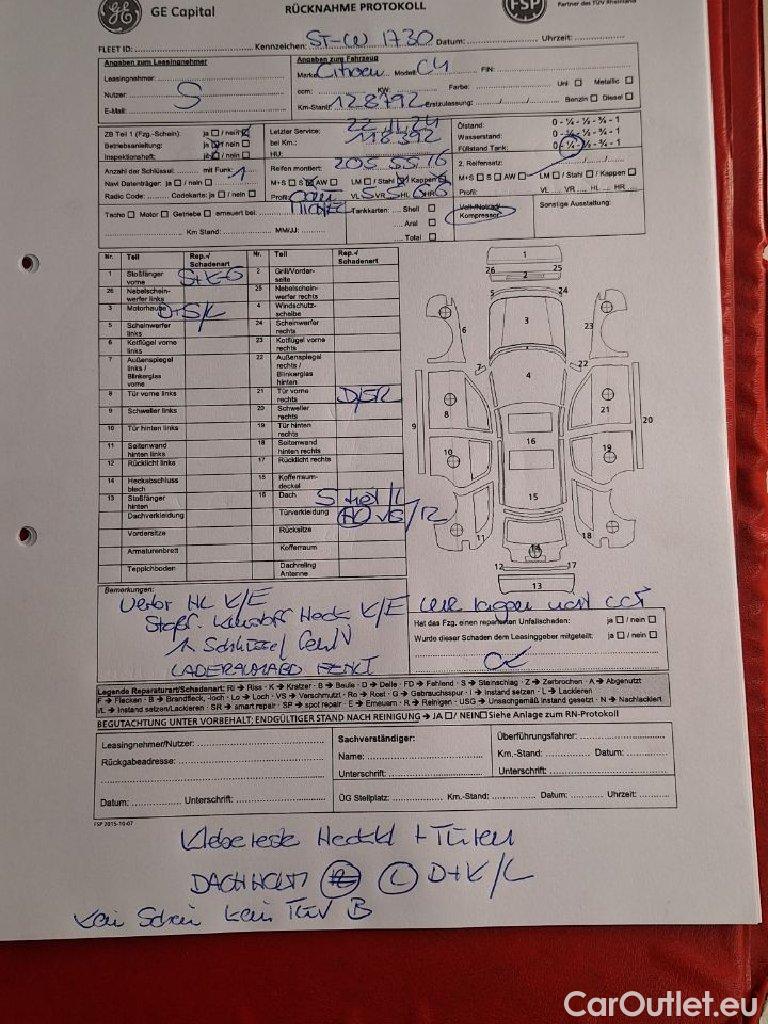 GE Capital
RÜCKNAHME PROTOKOLL
FSP
Partner des TÜV Rheinland
FLEET ID: Kennzeichen: ST-CW 1730 Datum: Uhrzeit:
Angaben zum Leasingnehmer
Leasingnehmer:
Nutzer:
E-Mail:
Angaben zum Fahrzeug
Marke: Citroen Modell: C4 FIN:
ccm: KW: Farbe: Uni Metallic
Km-Stand: 128792 Erstzulassung: / / Benzin Diesel
ZB Teil 1 (Fzg.-Schein): ja / nein
Betriebsanleitung: ja / nein
Inspektionsheft: ja / nein
Anzahl der Schlüssel: mit Funk: 1
Navi Datenträger: ja / nein
Radio Code: Codekarte: ja / nein
Letzter Service: 22.11.24
bei Km.: 118392
HU:
Reifen montiert: 205 55 16
M+S S AW LM / Stahl / Kappen
Profil: VL 5 VR 5 HL 6 HR 6
Ölstand: 0 - ¼ - ½ - ¾ - 1
Wasserstand: 0 - ¼ - ½ - ¾ - 1
Füllstand Tank: 0 - ¼ - ½ - ¾ - 1
2. Reifensatz:
M+S S AW LM / Stahl / Kappen
Profil: VL VR HL HR
Tacho Motor Getriebe erneuert bei:
Km Stand: MM/JJ:
Tankkarten: Shell
Aral
Total
Kompressor
Sonstige Ausstattung:
Nr. Teil Rep.-/ Schadenart Nr. Teil Rep.-/ Schadenart
1 Stoßfänger vorne 2 Grill/Vorderseite
26 Nebelscheinwerfer links 25 Nebelscheinwerfer rechts
3 Motorhaube D+S/L 4 Windschutzscheibe
5 Scheinwerfer links 24 Scheinwerfer rechts
6 Kotflügel vorne links 23 Kotflügel vorne rechts
7 Außenspiegel links / Blinkerglas vorne 22 Außenspiegel rechts / Blinkerglas hinten
8 Tür vorne links 21 Tür vorne rechts D/SR
9 Schweller links 20 Schweller rechts
10 Tür hinten links 19 Tür hinten rechts
11 Seitenwand hinten links 18 Seitenwand hinten rechts
12 Rücklicht links 17 Rücklicht rechts
14 Heckabschlussblech 15 Kofferraumdeckel
13 Stoßfänger hinten 16 Dach
Dachverkleidung Türverkleidung
Vordersitze Rücksitze
Armaturenbrett Kofferraum
Teppichboden Dachreling Antenne
Bemerkungen:
HL K/E
Stoßf. Kunststoff Heck K/E
1 Schlüssel
LADERAUMABD FEHLT
Hat das Fzg. einen reparierten Unfallschaden: ja / nein
Wurde dieser Schaden dem Leasinggeber mitgeteilt: ja / nein
Legende Reparaturart/Schadenart: RI → Riss · K → Kratzer · B → Beule · D → Delle · FD → Fehlend · S → Steinschlag · Z → Zerbrochen · A → Abgenutzt
F → Flecken · B → Brandfleck, -loch · Lo → Loch · VS → Verschmutzt · Ro → Rost · G → Gebrauchsspur · I → Instand setzen · L → Lackieren
I/L → Instand setzen/Lackieren · SR → smart repair · SP → spot repair · E → Erneuern · R → Reinigen · USG → Unsachgemäß instand gesetzt · N → Nachlackiert
BEGUTACHTUNG UNTER VORBEHALT; ENDGÜLTIGER STAND NACH REINIGUNG → JA / NEIN Siehe Anlage zum RN-Protokoll
Leasingnehmer/Nutzer:
Rückgabeadresse:
Datum: Unterschrift:
Sachverständiger:
Name:
Unterschrift:
Überführungsfahrer:
Km.-Stand: Datum:
Unterschrift:
ÜG Stellplatz: Km.-Stand: Datum: Uhrzeit:
FSP 2015-10-07
Klebereste Heckkl + Türen
L D+K/L
kein Schein kein TÜV B
CarOutlet.eu